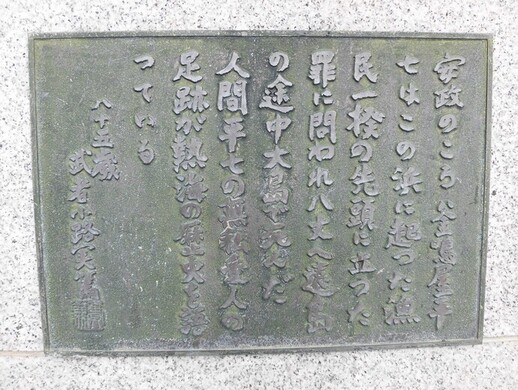 安政のころ釜鳴屋平
七はこの浜に起つた漁
民一揆の先頭に立つた
罪に問われ八丈へ遠島
の途中大島で死んだ
人間平七の無私愛人の
足跡が熱海の歴史を
つている
八十五歳
武者小路実篤